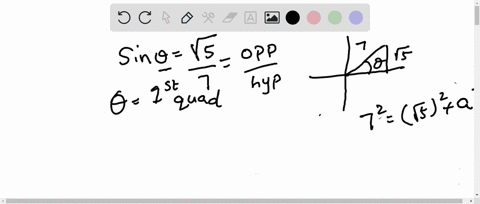 Sinθ = √5/7 = opp/hyp
θ = 1st quad
7
θ
√5
7² = (√5)² + a